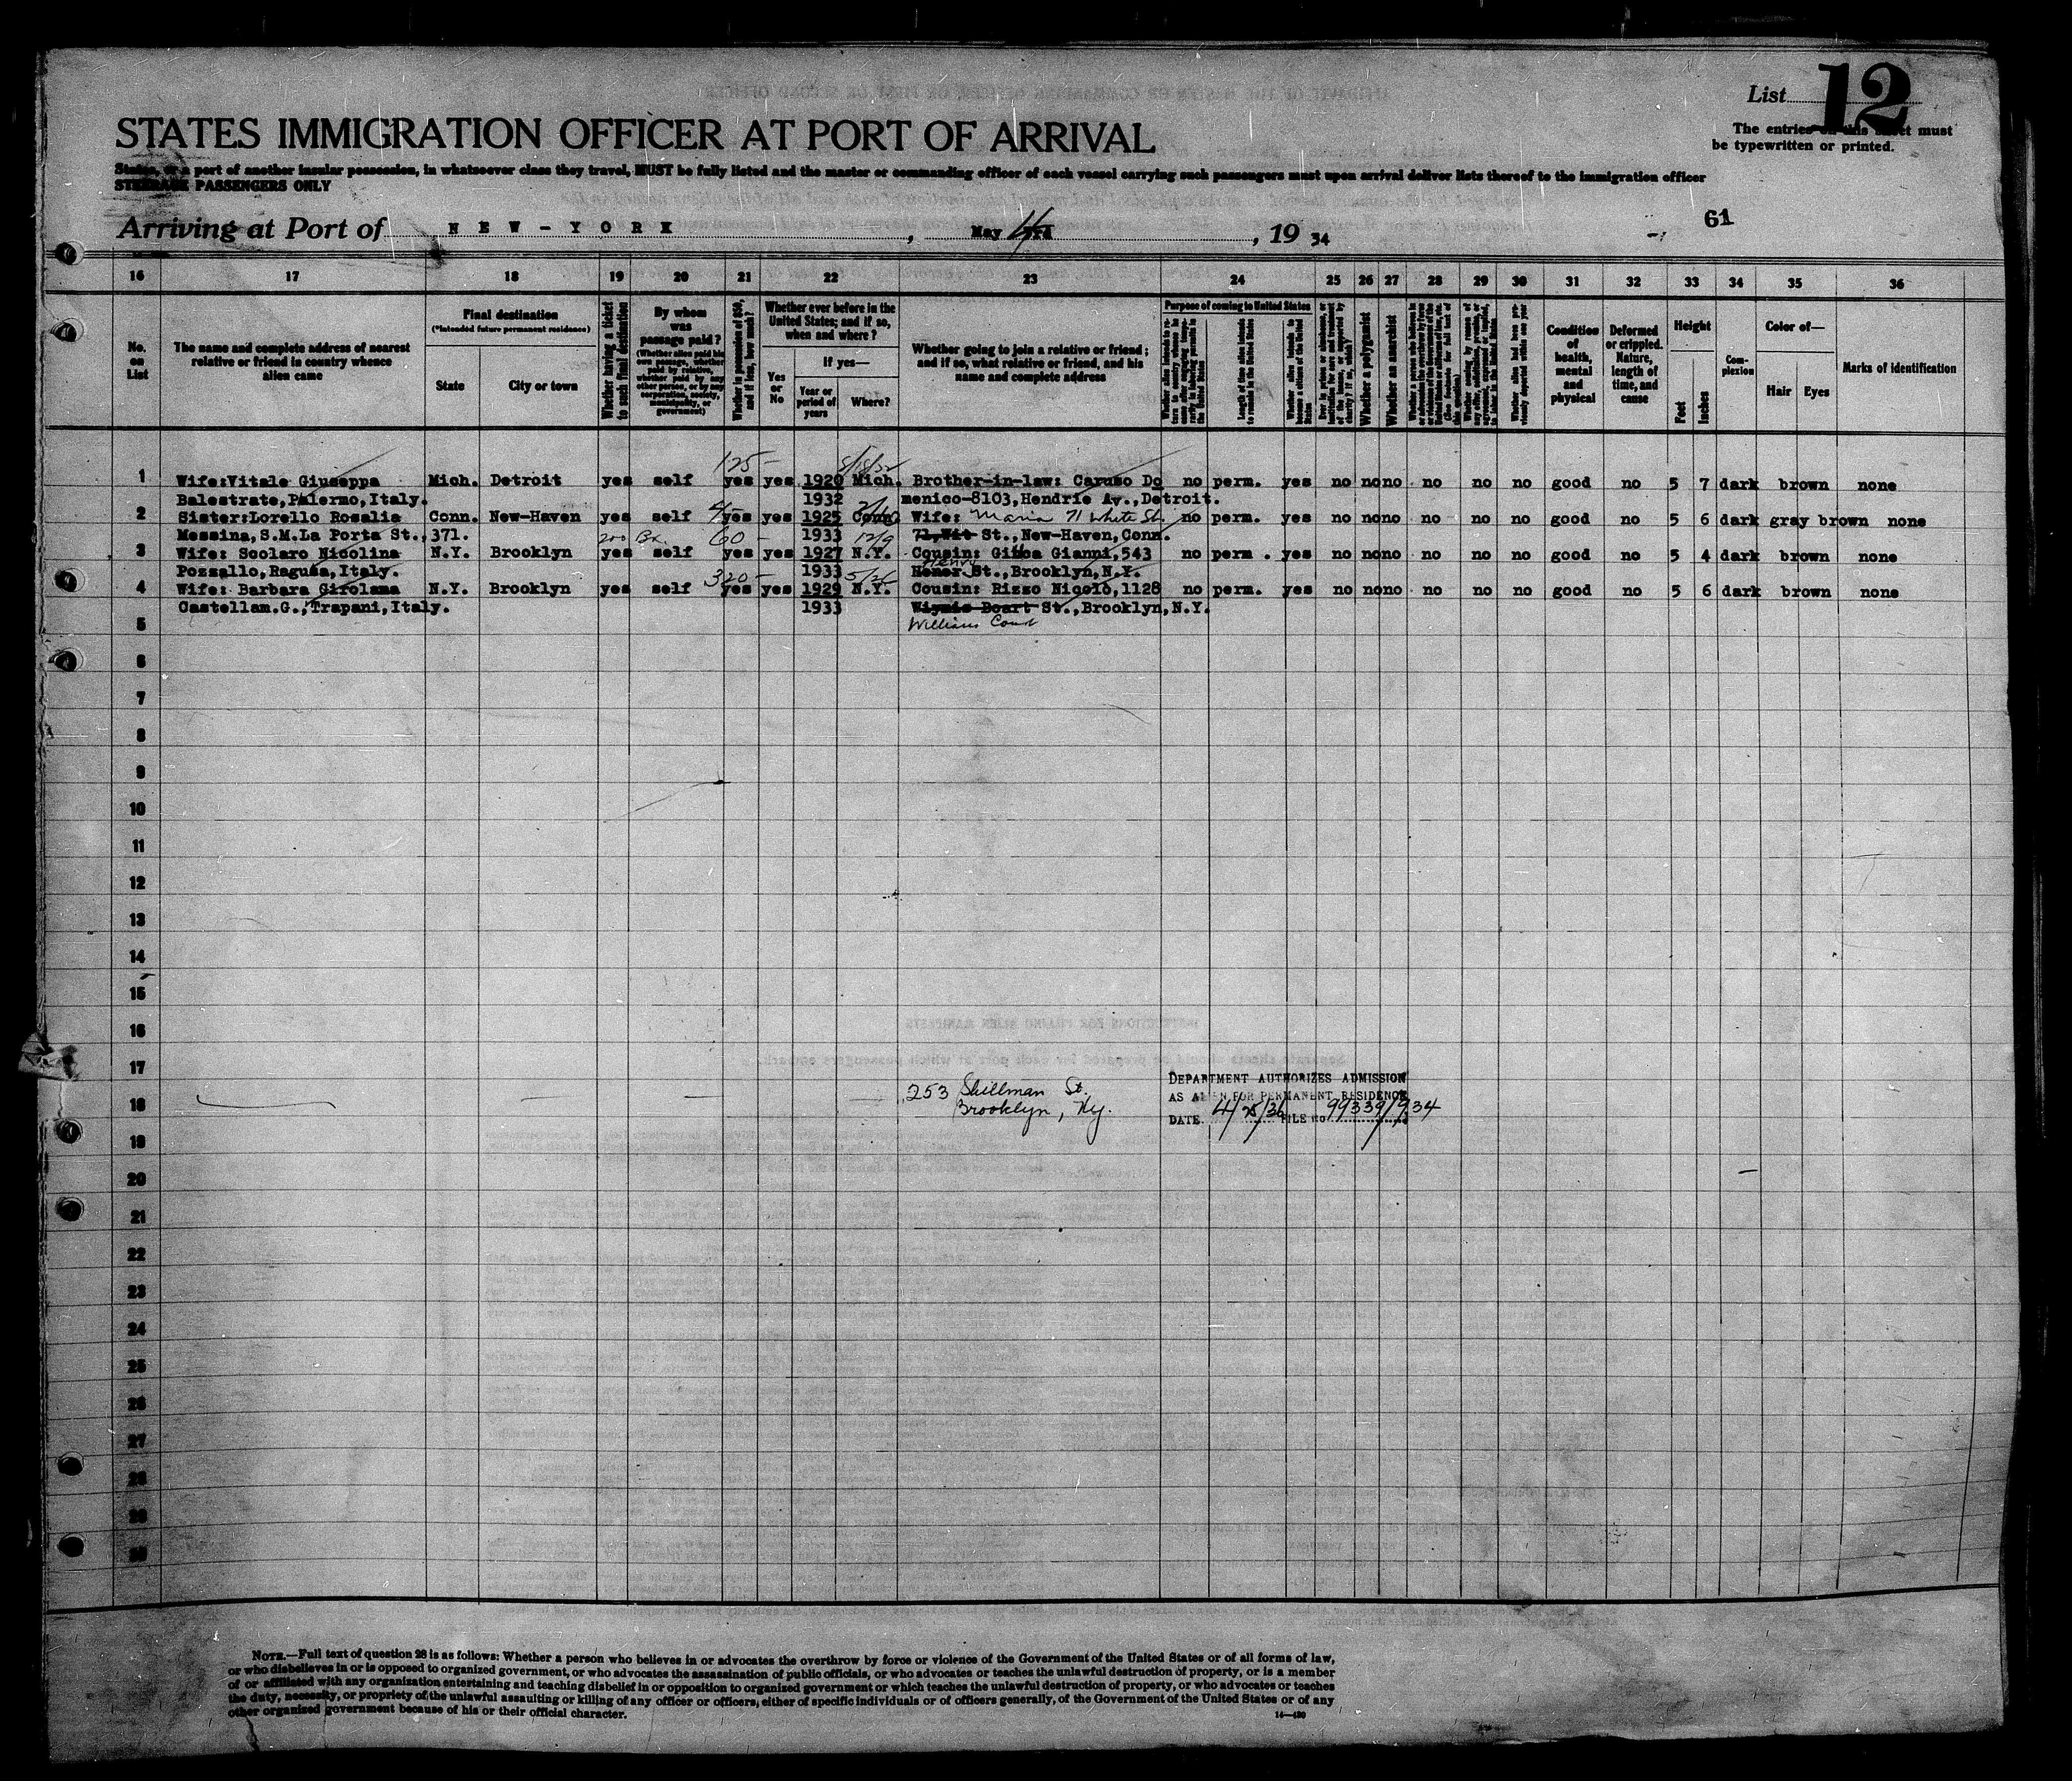 List 12
STATES IMMIGRATION OFFICER AT PORT OF ARRIVAL
The entries on this sheet must
be typewritten or printed.
States, or a port of another insular possession, in whatsoever class they travel, MUST be fully listed and the master or commanding officer of each vessel carrying such passengers must upon arrival deliver lists thereof to the immigration officer
STEERAGE PASSENGERS ONLY
61
Arriving at Port of NEW-YORK, May 4, 1934
16 17 18 19 20 21 22 23 24 25 26 27 28 29 30 31 32 33 34 35 36
No. on List
The name and complete address of nearest relative or friend in country whence alien came
Final destination
(*Intended future permanent residence)
State
City or town
Whether having a ticket to such final destination
By whom was passage paid?
(Whether alien paid his own passage, whether paid by relative, whether paid by any other person, or by any corporation, society, municipality, or government)
Whether in possession of $50, and if less, how much?
Whether ever before in the United States; and if so, when and where?
Yes or No
If yes—
Year or period of years
Where?
Whether going to join a relative or friend; and if so, what relative or friend, and his name and complete address
Purpose of coming to United States
Length of time alien intends to remain in the United States
Whether alien intends to become a citizen of the United States
Whether a polygamist
Whether an anarchist
Condition of health, mental and physical
Deformed or crippled. Nature, length of time, and cause
Height
Feet
Inches
Complexion
Color of—
Hair
Eyes
Marks of identification
125 — 8/18/32
1 Wife:Vitale Giuseppa Mich. Detroit yes self yes yes 1920 Mich. Brother-in-law: Caruso Do no perm. yes no no no no no no good no 5 7 dark brown none
Balestrate,Palermo,Italy. 1932 menico-8103,Hendrie Av.,Detroit.
2 Sister:Lorello Rosalia Conn. New-Haven yes self yes yes 1925 Conn. Wife: Maria 71 White St. no perm. yes no no no no no no good no 5 6 dark gray brown none
Messina,S.M.La Porta St.,371. 1933 71,Wit St.,New-Haven,Conn.
60 — 12/9
3 Wife: Scolaro Nicolina N.Y. Brooklyn yes self yes yes 1927 N.Y. Cousin: Gianni,543 no perm. yes no no no no no no good no 5 4 dark brown none
Pozzallo,Ragusa,Italy. 1933 Henry St.,Brooklyn,N.Y.
320 — 5/26
4 Wife: Barbara Girolama N.Y. Brooklyn yes self yes yes 1929 N.Y. Cousin: Rizzo Nicolo,1128 no perm. yes no no no no no no good no 5 6 dark brown none
Castellam.G.,Trapani,Italy. 1933 St.,Brooklyn,N.Y.
William Court
5
6
7
8
9
10
11
12
13
14
15
16
17
18 253 Skillman St.
Brooklyn, Ny.
DEPARTMENT AUTHORIZES ADMISSION
AS ALIEN FOR PERMANENT RESIDENCE
DATE 4/25/36 FILE No 99339/934
19
20
21
22
23
24
25
26
27
28
29
30
NOTE.—Full text of question 28 is as follows: Whether a person who believes in or advocates the overthrow by force or violence of the Government of the United States or of all forms of law,
or who disbelieves in or is opposed to organized government, or who advocates the assassination of public officials, or who advocates or teaches the unlawful destruction of property, or is a member
of or affiliated with any organization entertaining and teaching disbelief in or opposition to organized government or which teaches the unlawful destruction of property, or who advocates or teaches
the duty, necessity, or propriety of the unlawful assaulting or killing of any officer or officers, either of specific individuals or of officers generally, of the Government of the United States or of any
other organized government because of his or their official character.
14—480